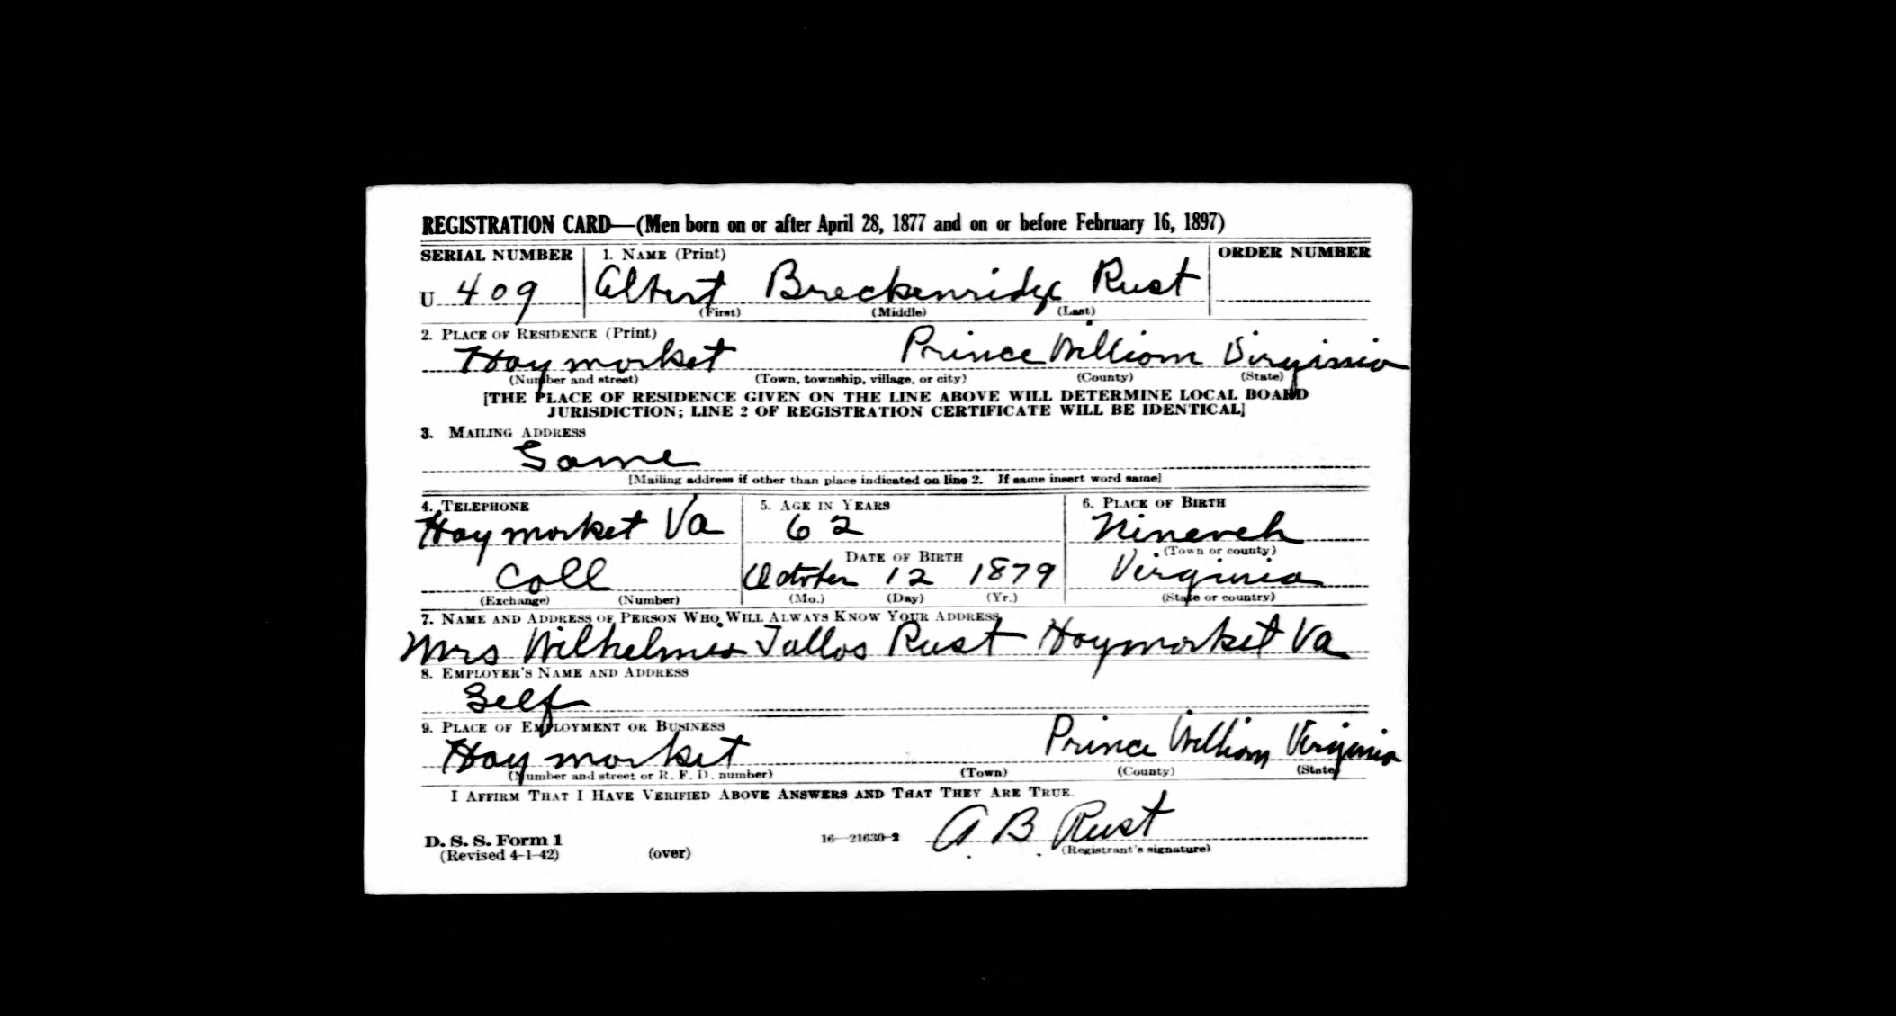 REGISTRATION CARD—(Men born on or after April 28, 1877 and on or before February 16, 1897)
SERIAL NUMBER 1. NAME (Print) ORDER NUMBER
U 409 Albert Breckenridge Rust
(First) (Middle) (Last)
2. PLACE OF RESIDENCE (Print)
Haymarket Prince William Virginia
(Number and street) (Town, township, village, or city) (County) (State)
[THE PLACE OF RESIDENCE GIVEN ON THE LINE ABOVE WILL DETERMINE LOCAL BOARD
JURISDICTION; LINE 2 OF REGISTRATION CERTIFICATE WILL BE IDENTICAL]
3. MAILING ADDRESS
Same
[Mailing address if other than place indicated on line 2. If same insert word same]
4. TELEPHONE 5. AGE IN YEARS 6. PLACE OF BIRTH
Haymarket Va 62 Nineveh
DATE OF BIRTH (Town or county)
Call October 12 1879 Virginia
(Exchange) (Number) (Mo.) (Day) (Yr.) (State or country)
7. NAME AND ADDRESS OF PERSON WHO WILL ALWAYS KNOW YOUR ADDRESS
Mrs Wilhelmia Rust Haymarket Va
8. EMPLOYER'S NAME AND ADDRESS
Self
9. PLACE OF EMPLOYMENT OR BUSINESS
Haymarket Prince William Virginia
(Number and street or R. F. D. number) (Town) (County) (State)
I AFFIRM THAT I HAVE VERIFIED ABOVE ANSWERS AND THAT THEY ARE TRUE.
D. S. S. Form 1 16—21630-2 A B Rust
(Revised 4-1-42) (over) (Registrant's signature)